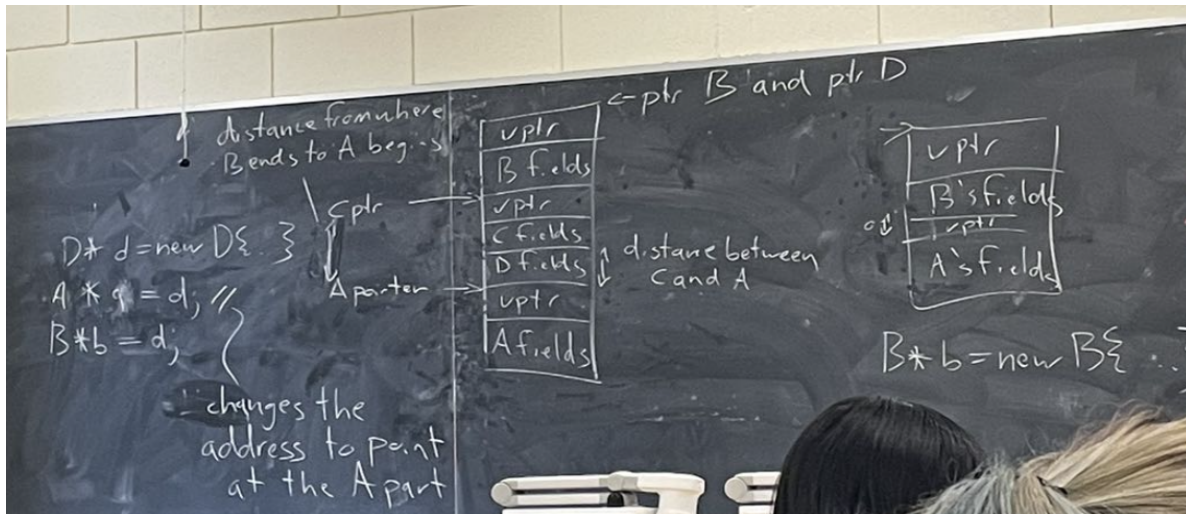 distance from where
B ends to A begins
C ptr
D* d = new D{..}
A * a = d; //
B*b = d;
A pointer
changes the
address to point
at the A part
<- ptr B and ptr D
vptr
B fields
vptr
C fields
D fields
vptr
A fields
distance between
C and A
vptr
B's fields
vptr
A's fields
B* b = new B{ ..